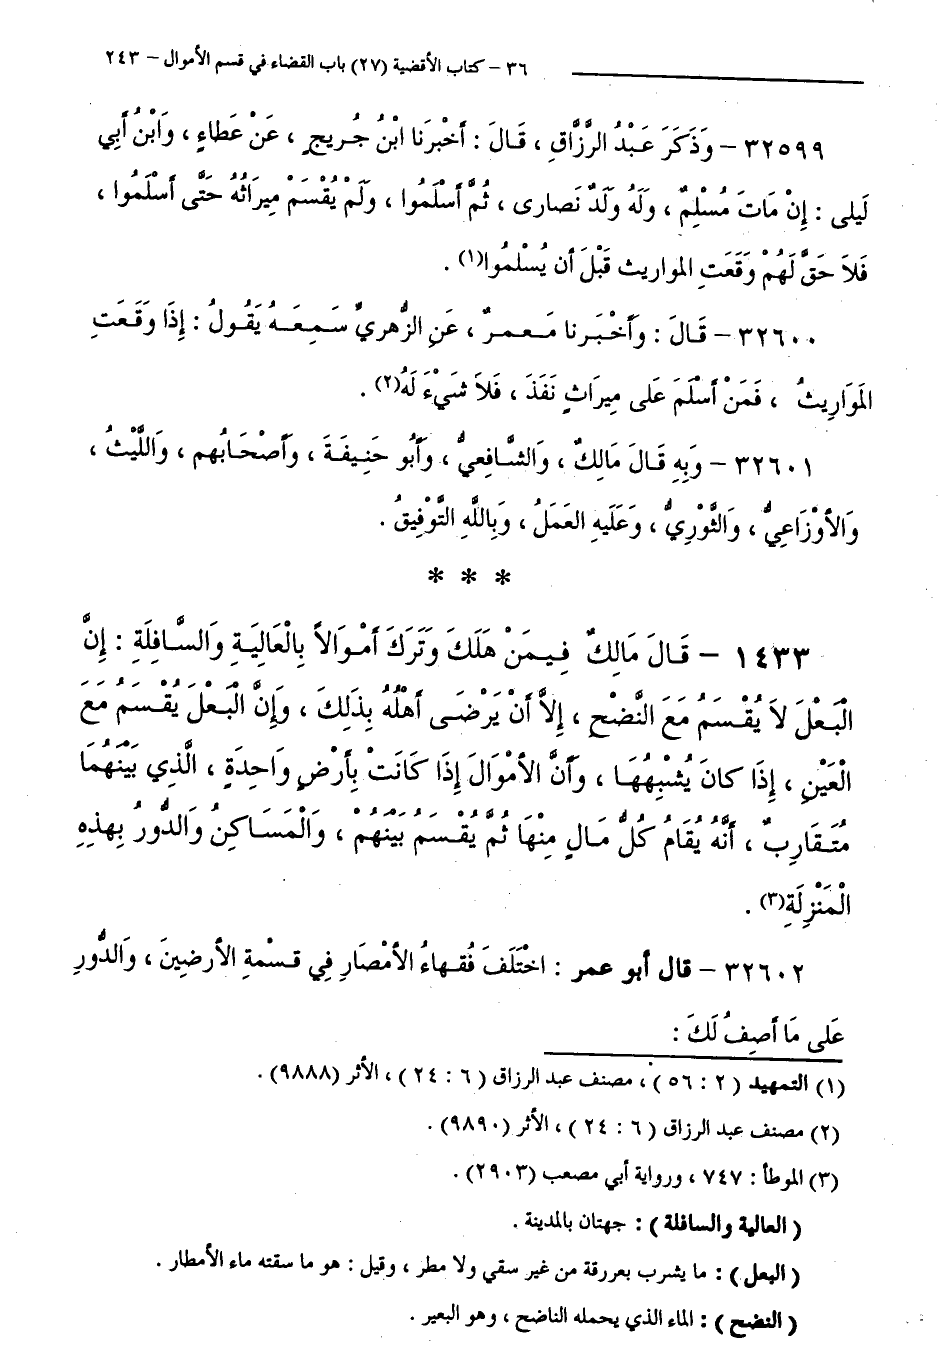 ٣٦ – كتاب الأقضية (٢٧) باب القضاء في قسم الأموال – ٢٤٣
٣٢٥٩٩ – وَذَكَرَ عَبْدُ الرَّزَّاقِ ، قَالَ : أَخْبَرَنَا ابْنُ جُريجٍ ، عَنْ عَطَاءٍ ، وَابْنُ أَبِي
لَيلى : إِنْ مَاتَ مُسْلِمٌ ، وَلَهُ وَلَدٌ نَصارى ، ثُمَّ أَسْلَمُوا ، وَلَمْ يُقْسَمْ مِيرَاثُهُ حَتَّى أَسْلَمُوا ،
فَلاَ حَقَّ لَهُمْ وَقَعَتِ المواريث قَبْلَ أن يُسْلمُوا(١) .
٣٢٦٠٠ – قَالَ : وَأَخْبَرنا مَعمرٌ ، عَنِ الزُّهريِّ سَمِعَهُ يَقُولُ : إِذَا وَقَعَتِ
المَوَارِيثُ ، فَمَنْ أَسْلَمَ عَلى مِيرَاثٍ نَفَذَ ، فَلاَ شَيْءَ لَهُ(٢) .
٣٢٦٠١ – وَبِهِ قَالَ مَالِكٌ ، وَالشَّافِعيُّ ، وَأَبُو حَنِيفَةَ ، وَأصْحَابُهم ، وَاللَّيْثُ ،
وَالأوْزَاعِيُّ ، وَالثَّوْرِيُّ ، وَعَلَيهِ العَمَلُ ، وَبِاللَّهِ التَّوْفِيقُ .
* * *
١٤٣٣ – قَالَ مَالِكٌ فِيمَنْ هَلَكَ وَتَرَكَ أَمْوَالاً بِالْعَالِيَةِ وَالسَّافِلَةِ : إِنَّ
الْبَعْلَ لاَ يُقْسَمُ مَعَ النَّضْحِ ، إِلاَّ أَنْ يَرْضَى أَهْلُهُ بِذَلِكَ ، وَإِنَّ الْبَعْلَ يُقْسَمُ مَعَ
الْعَيْنِ ، إِذَا كانَ يُشْبِهُهَا ، وَأَنَّ الأَمْوَالَ إِذَا كَانَتْ بِأَرْضٍ وَاحِدَةٍ ، الَّذِي بَيْنَهُمَا
مُتَقَارِبٌ ، أَنَّهُ يُقَامُ كُلُّ مَالٍ مِنْهَا ثُمَّ يُقْسَمُ بَيْنَهُمْ ، وَالْمَسَاكِنُ وَالدُّورُ بِهذِهِ
الْمَنْزِلَةِ(٣) .
٣٢٦٠٢ – قال أبو عمر : اخْتَلَفَ فُقهاءُ الأمْصَارِ فِي قسْمةِ الأرضِينَ ، وَالدُّورِ
عَلى مَا أصِفُ لَكَ :
(١) التمهيد ( ٢ : ٥٦ ) ، مصنف عبد الرزاق ( ٦ : ٢٤ ) ، الأثر (٩٨٨٨) .
(٢) مصنف عبد الرزاق ( ٦ : ٢٤ ) ، الأثر (٩٨٩٠) .
(٣) الموطأ : ٧٤٧ ، ورواية أبي مصعب (٢٩٠٣) .
( العالية والسافلة ) : جهتان بالمدينة .
( البعل ) : ما يشرب بعروقه من غير سقي ولا مطر ، وقيل : هو ما سقته ماء الأمطار .
( النضح ) : الماء الذي يحمله الناضح ، وهو البعير .